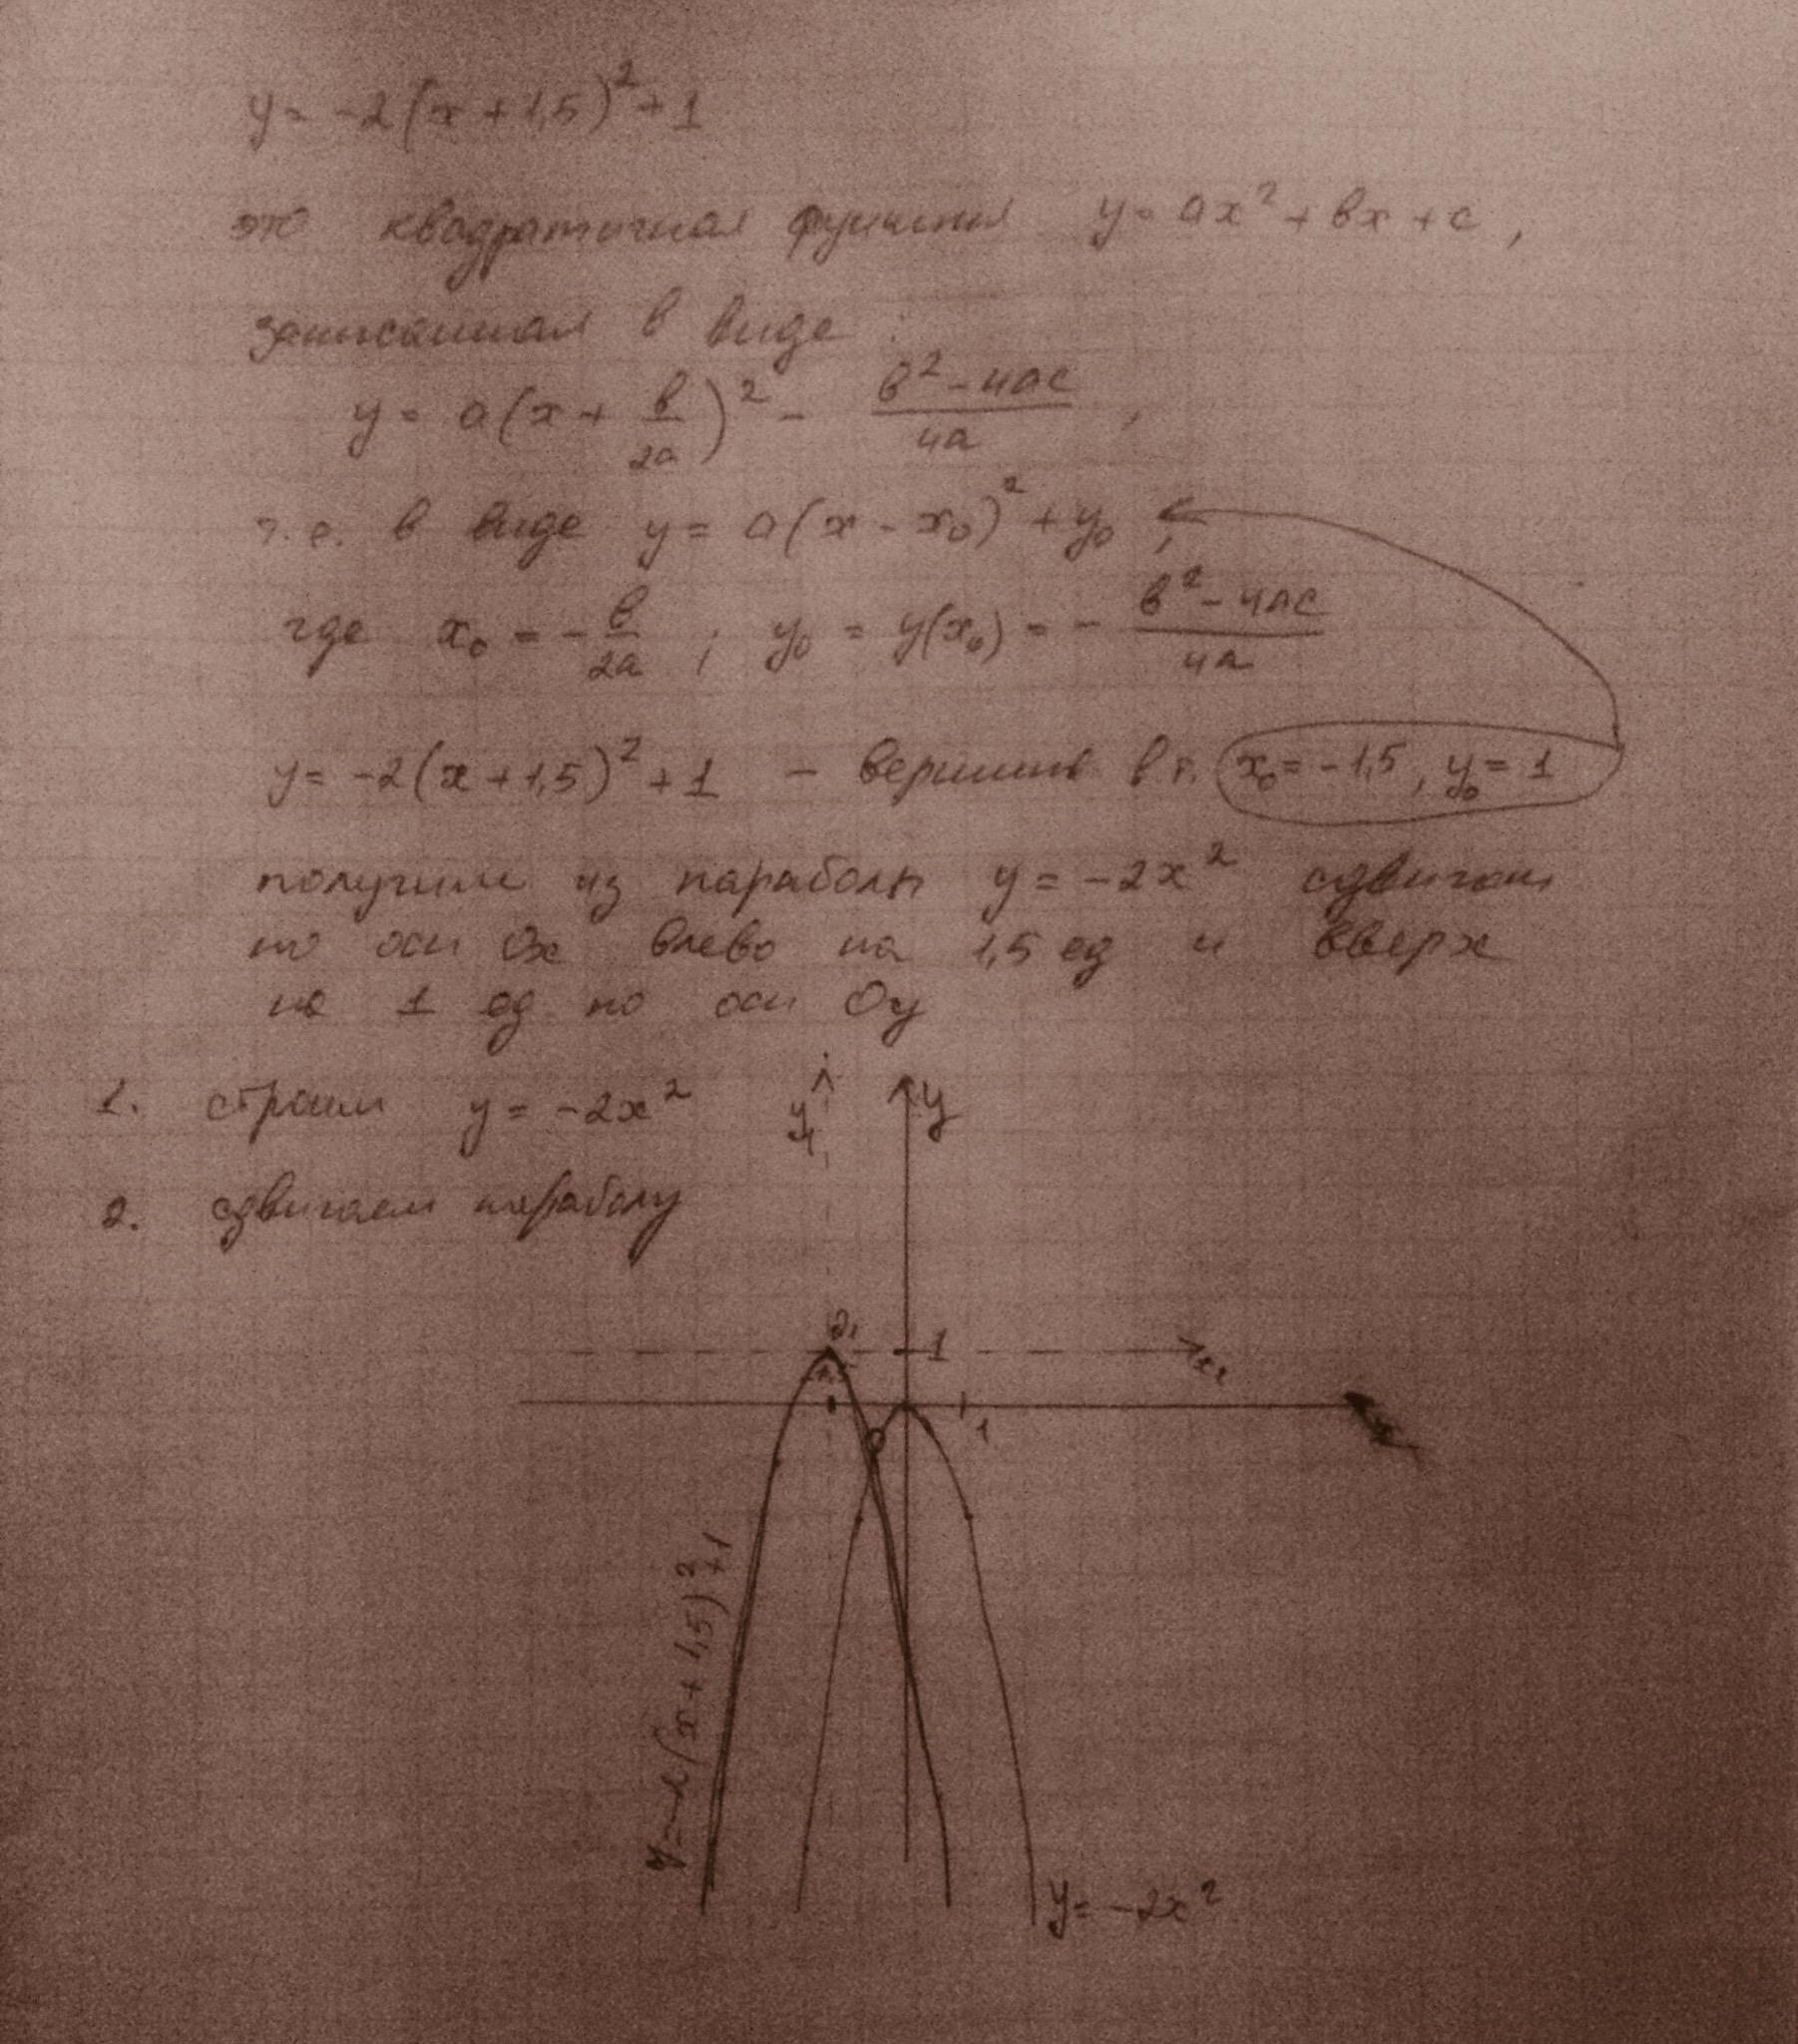 y = -2(x+1,5)²+1
это квадратичная функция y = ax²+вx+c,
записанная в виде :
y = a(x + в/2a)² - в²-4ac/4a ,
т.е. в виде y = a(x - x₀)² + y₀ ,
где x₀ = - в/2a ; y₀ = y(x₀) = - в²-4ac/4a
y = -2(x+1,5)² + 1 - вершина в т. x₀ = -1,5 , y₀ = 1
получим из параболы y = -2x² сдвигом
по оси Ox влево на 1,5 ед и вверх
на 1 ед по оси Oy
1. строим y = -2x²
y₁
y
2. сдвигаем параболу
O₁
1
x₁
-1,5
1
x
y = -2(x+1,5)²+1
y = -2x²